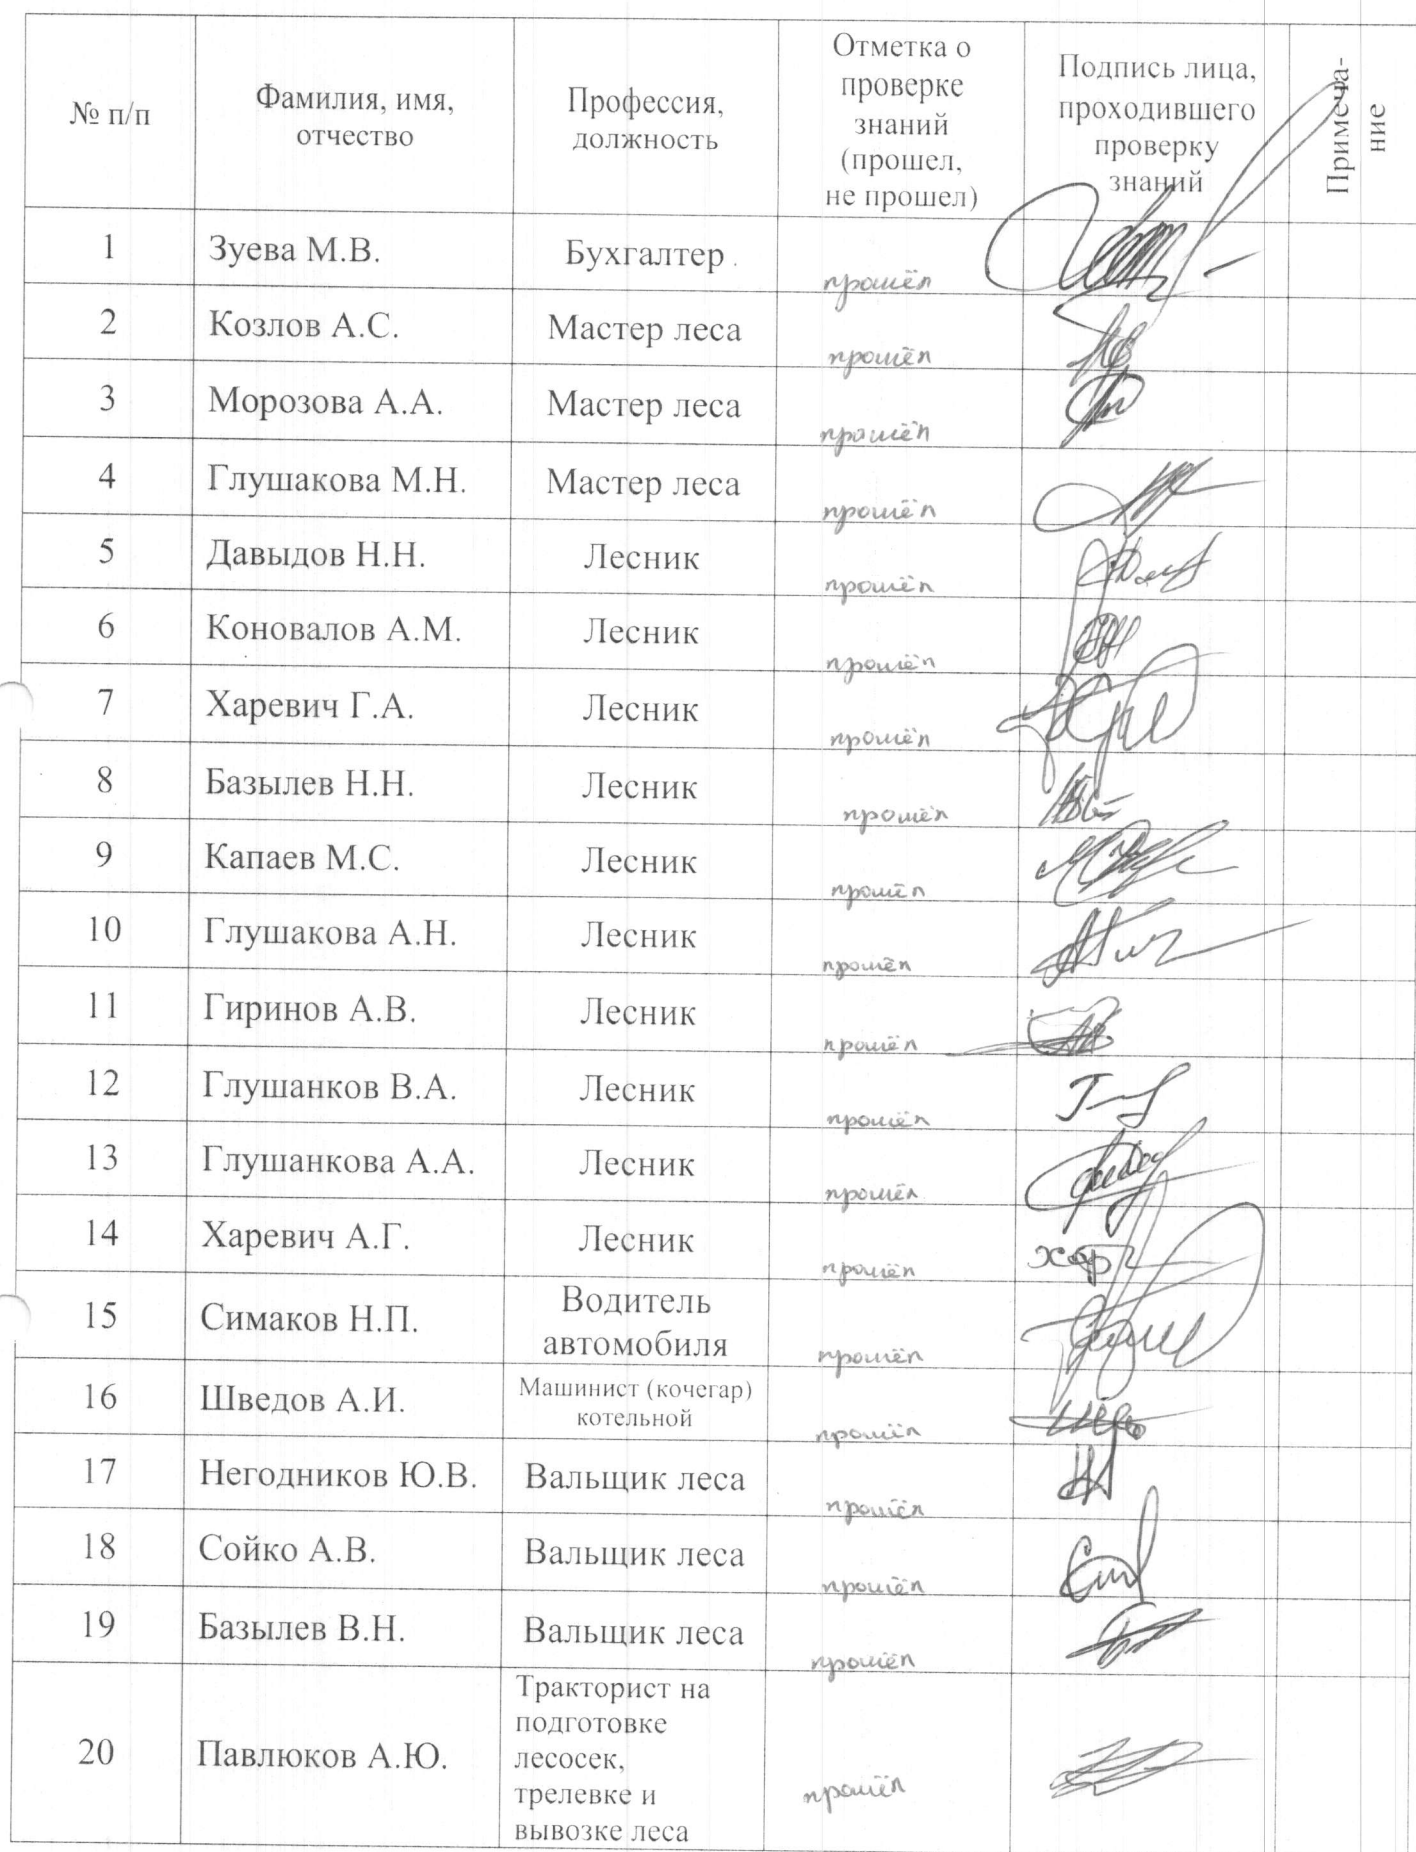 № п/п
Фамилия, имя,
отчество
Профессия,
должность
Отметка о
проверке
знаний
(прошел,
не прошел)
Подпись лица,
проходившего
проверку
знаний
Примеча-
ние
1 Зуева М.В. Бухгалтер прошёл
2 Козлов А.С. Мастер леса прошёл
3 Морозова А.А. Мастер леса прошёл
4 Глушакова М.Н. Мастер леса прошёл
5 Давыдов Н.Н. Лесник прошёл
6 Коновалов А.М. Лесник прошёл
7 Харевич Г.А. Лесник прошёл
8 Базылев Н.Н. Лесник прошёл
9 Капаев М.С. Лесник прошёл
10 Глушакова А.Н. Лесник прошёл
11 Гиринов А.В. Лесник прошёл
12 Глушанков В.А. Лесник прошёл
13 Глушанкова А.А. Лесник прошёл
14 Харевич А.Г. Лесник прошёл
15 Симаков Н.П. Водитель
автомобиля прошёл
16 Шведов А.И. Машинист (кочегар)
котельной прошёл
17 Негодников Ю.В. Вальщик леса прошёл
18 Сойко А.В. Вальщик леса прошёл
19 Базылев В.Н. Вальщик леса прошёл
20 Павлюков А.Ю. Тракторист на
подготовке
лесосек,
трелевке и
вывозке леса прошёл